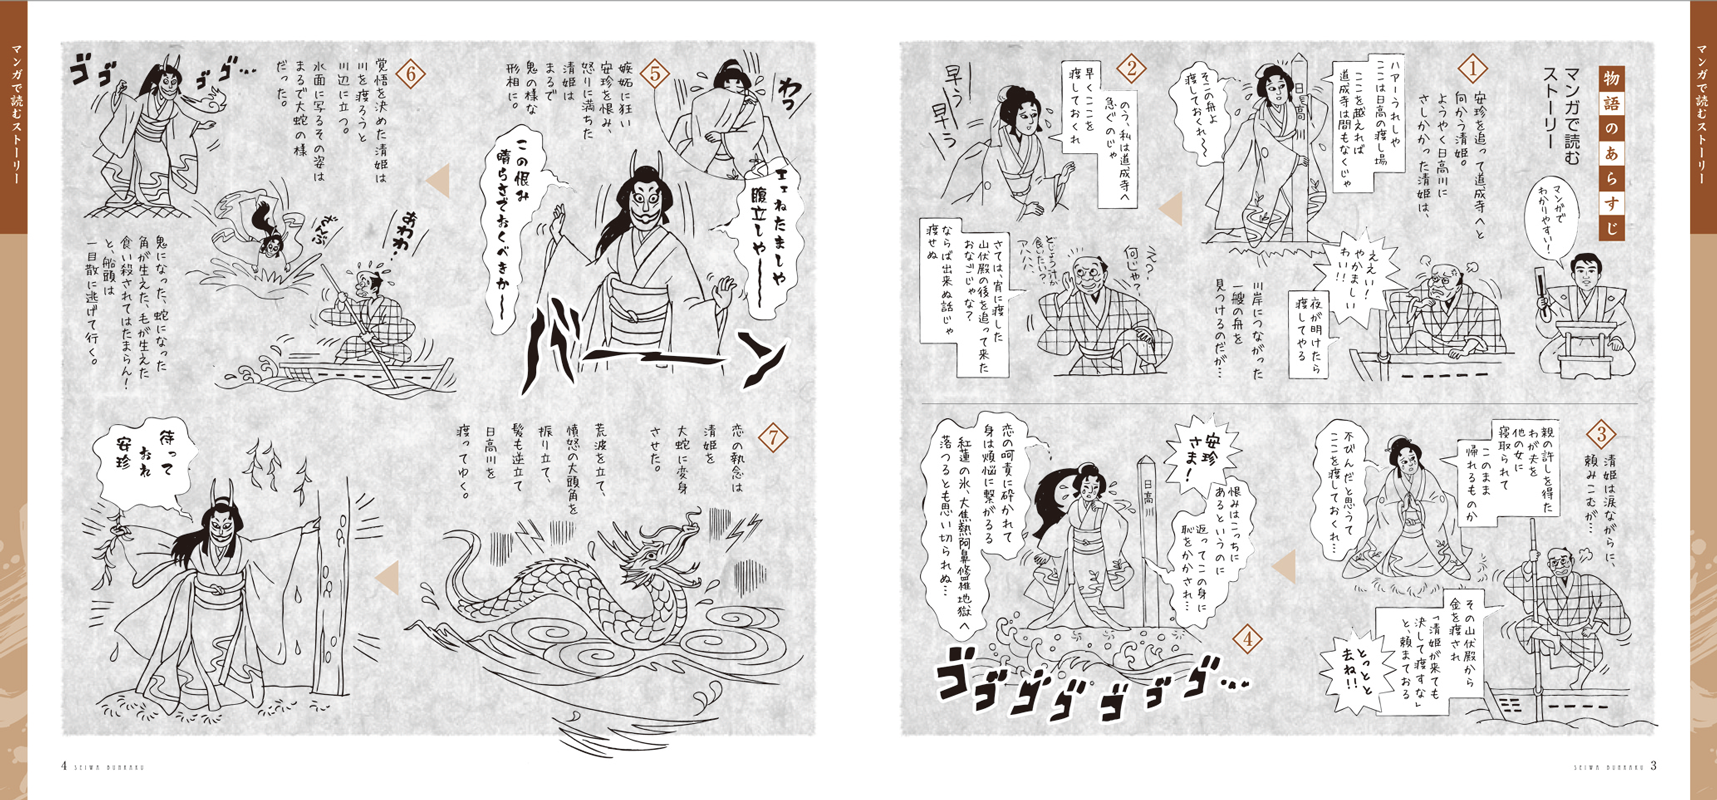 マンガで読むストーリー
物語のあらすじ
マンガで読む
ストーリー
マンガで
わかりやすい!
1
安珍を追って道成寺へと
向かう清姫。
ようやく日高川に
さしかかった清姫は、
ハアーうれしや
ここは日高の渡し場
ここを越えれば
道成寺は間もなくじゃ
日高川
そこの舟よ
渡しておくれ〜
川岸につながった
一艘の舟を
見つけるのだが…
ええい!
やかましい
わい!!
夜が明けたら
渡してやる
2
のう、私は道成寺へ
急ぐのじゃ
早くここを
渡しておくれ
早う
早う
え?
何じゃ?
どじょう汁が
食いたい?
アハハハ、
さては、宵に渡した
山伏殿の後を追って来た
おなごじゃな?
ならば出来ぬ話じゃ
渡せぬ
3
清姫は涙ながらに、
頼みこむが…
親の許しを得た
わが夫を
他の女に
寝取られて
このまま
帰れるものか
不びんだと思うて
ここを渡しておくれ…
その山伏殿から
金を渡され
「清姫が来ても
決して渡すな」
と、頼まておる
とっとと
去ね!!
4
安珍
さま!
日高川
恨みはこっちに
あるというのに
返ってこの身に
恥をかかされ…
恋の呵責に砕かれて
身は煩悩に繋がるる
紅蓮の氷、大焦熱阿鼻修羅地獄へ
落つるとも思い切られぬ…
ゴゴゴゴゴゴゴ…
SEIWA BUNRAKU 3
マンガで読むストーリー
5
わっ
嫉妬に狂い
安珍を恨み、
怒りに満ちた
清姫は
まるで
鬼の様な
形相に。
エエねたましや
腹立しや――
この恨み
晴らさでおくべきか〜
バーン
6
覚悟を決めた清姫は
川を渡ろうと
川辺に立つ。
水面に写るその姿は
まるで大蛇の様
だった。
ゴゴゴゴ…
ざんぶ
あわわ…
鬼になった、蛇になった
角が生えた、毛が生えた
食い殺されてはたまらん!
と、船頭は
一目散に逃げて行く。
7
恋の執念は
清姫を
大蛇に変身
させた。
荒波を立て、
憤怒の大頭角を
振り立て、
髪も逆立て
日高川を
渡ってゆく。
待って
おれ
安珍
4 SEIWA BUNRAKU